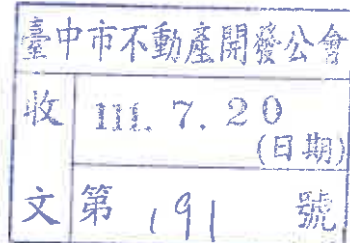 臺中市不動產開發公會
收 111. 7. 20
(日期)
文 第 191 號